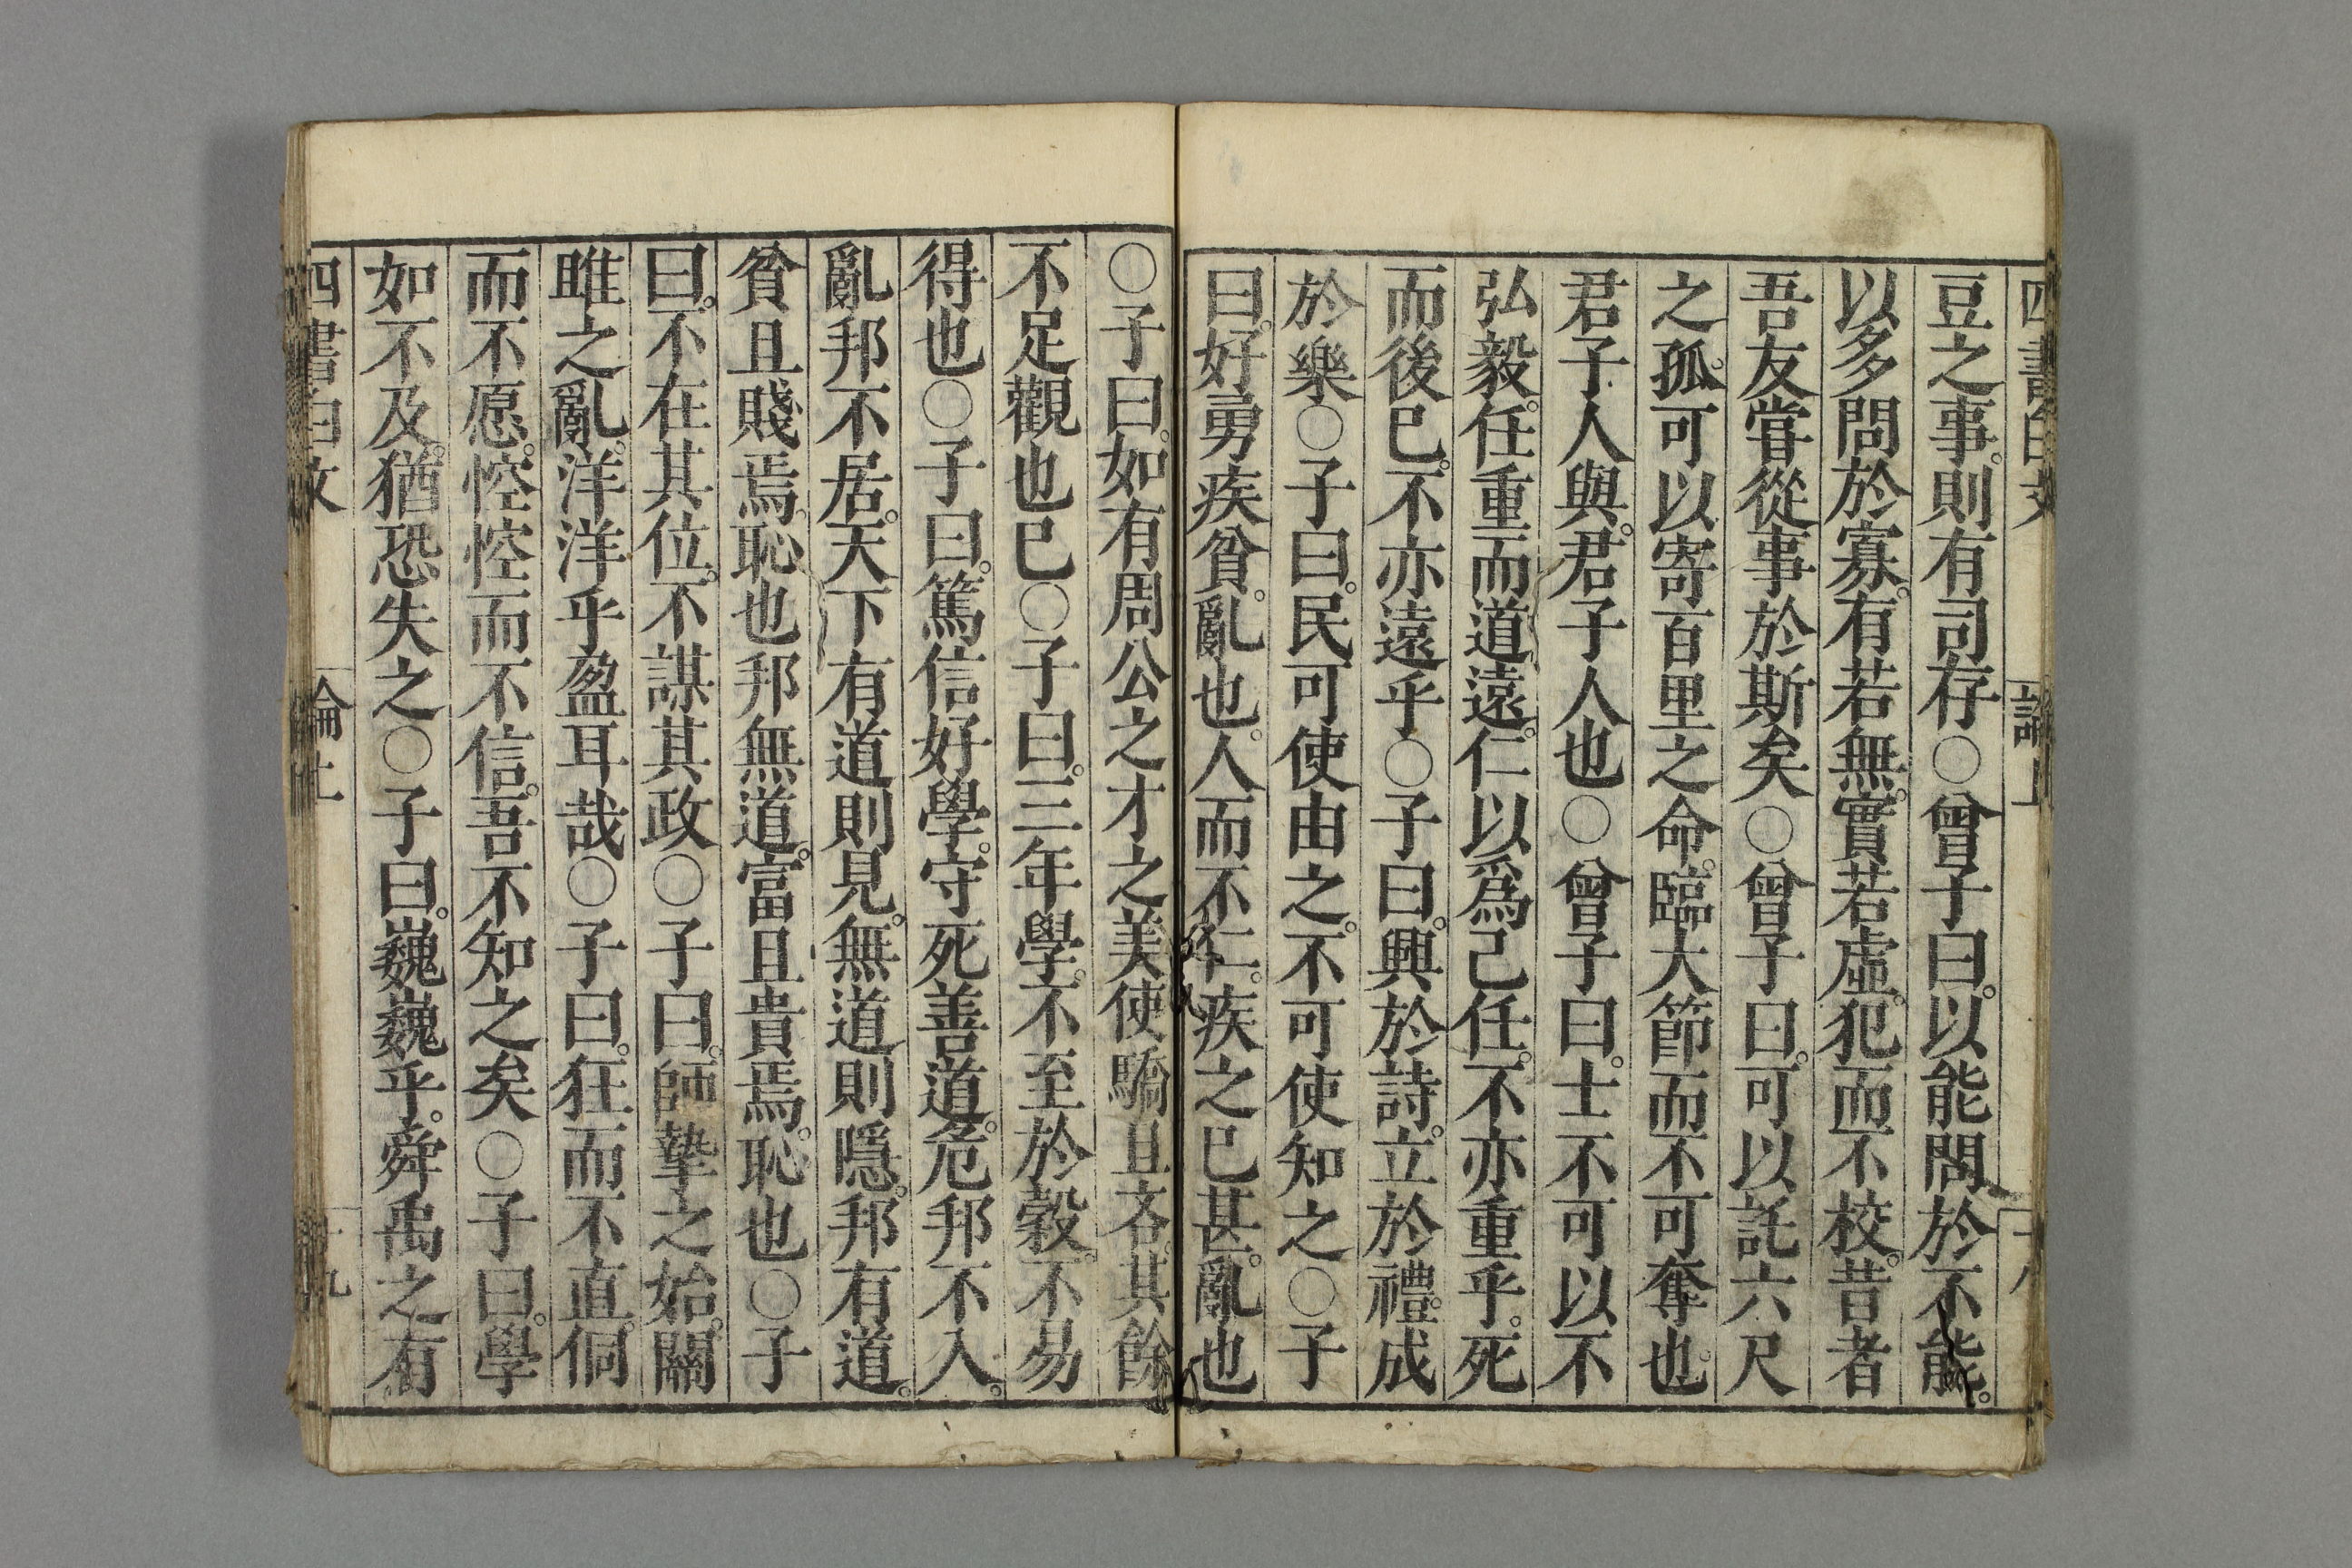 四書白文 論上 十八
豆之事。則有司存○曾子曰。以能問於不能。
以多問於寡。有若無。實若虛。犯而不校。昔者
吾友嘗從事於斯矣○曾子曰。可以託六尺
之孤。可以寄百里之命。臨大節而不可奪也。
君子人與。君子人也○曾子曰。士不可以不
弘毅。任重而道遠。仁以爲己任。不亦重乎。死
而後已。不亦遠乎○子曰。興於詩。立於禮。成
於樂○子曰。民可使由之。不可使知之○子
曰。好勇疾貧。亂也。人而不仁。疾之已甚。亂也
○子曰。如有周公之才之美使驕且吝。其餘
不足觀也已○子曰。三年學。不至於穀。不易
得也○子曰。篤信好學。守死善道。危邦不入。
亂邦不居。天下有道則見。無道則隱。邦有道。
貧且賤焉。恥也邦無道。富且貴焉。恥也○子
曰。不在其位。不謀其政○子曰。師摯之始。關
雎之亂。洋洋乎盈耳哉○子曰。狂而不直。侗
而不愿。悾悾而不信。吾不知之矣○子曰。學
如不及。猶恐失之○子曰。巍巍乎。舜禹之有
四書白文 論上 十九